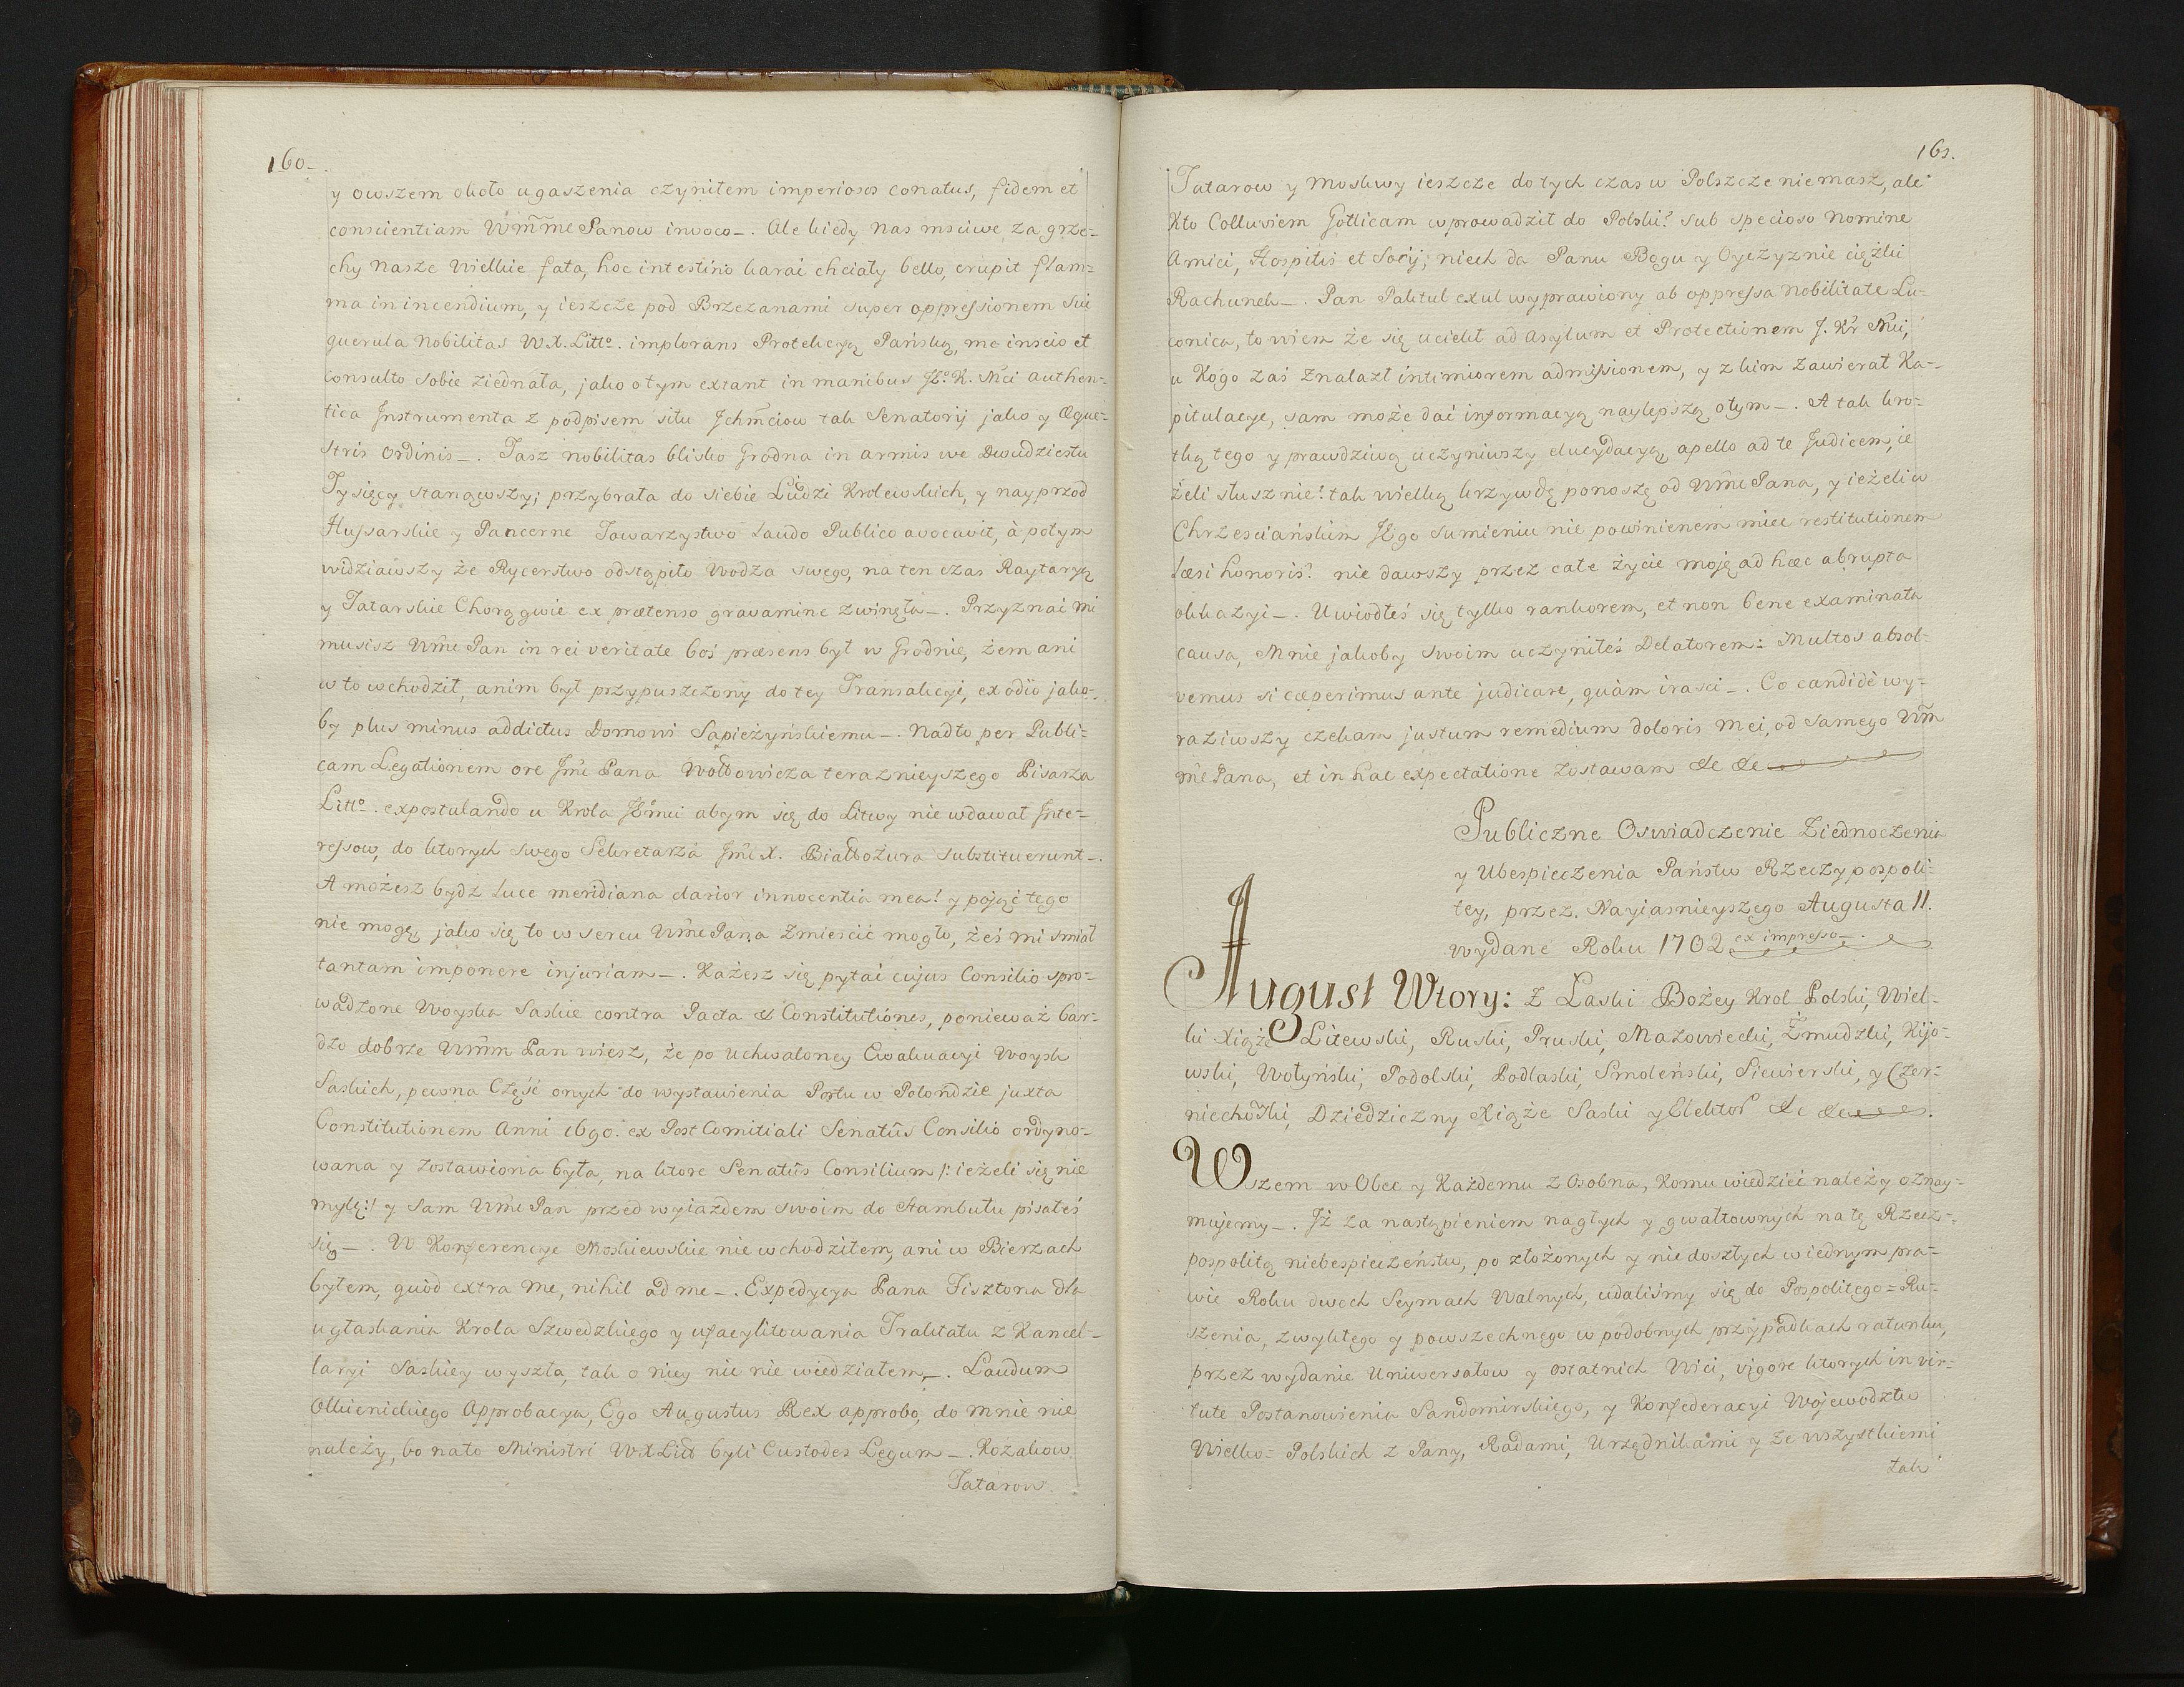 160_
y owszem około ugaszenia czyniłem imperiosos conatus, fidem et
conscientiam Wm̃me Panow invoco_. Ale kiedy nas mściwe za grze=
chy nasze wielkie fata, hoc intestino karać chciały bello, erupit flam=
ma in incendium, y ieszcze pod Brzezanami super oppressionem sui
querula nobilitas W.X. Litto. implorans Protekcyą Pańską, me inscio et
consulto sobie ziednała, jako o tym extant in manibus Jo. K. Mći authen=
tica Instrumenta z podpisem situ Jchmciow tak Senatorij jako y Eque=
stris Ordinis_. Taż nobilitas blisko Grodna in armis we Dwudziestu
Tysięcy stanąwszy; przybrała do siebie Ludzi Krolewskich, y nayprzod
Hussarskie y Pancerne Towarzystwo Laudo Publico avocavit, à potym
widziawszy że Rycerstwo odstąpiło Wodza swego, na ten czas Raytaryą
y Tatarskie Chorągwie ex prætenso gravamine zwinęła_. Przyznać mi
musisz Wm̃e Pan in rei veritate boś præsens był w Grodnie, żem ani
w to wchodził, anim był przypuszczony do tey Transakcyi, ex odio jako=
by plus minus addictus Domowi Sapieżyńskiemu_. Nadto per Publi=
cam Legationem ore Jm̃e Pana Wołłowicza teraznieyszego Pisarza
Litto. expostulando u Krola Jẽmci abym się do Litwy nie wdawał Inte=
ressow, do ktorych swego Sekretarza Jm̃e X. Białłozura substituerunt_.
A możesz bydz luce meridiana clarior innocentia mea! y pojąć tego
nie mogę, jako się to w sercu Wm̃e Pana zmieścić mogło, żeś mi smiał
tantam imponere injuriam_. Każesz się pytać cujus Consilio spro=
wadzone Woyska Saskie contra Pacta et Constitutiones, ponieważ bar=
dzo dobrze Wm̃m Pan wiesz, że po uchwaloney Ewakuacyi Woysk
Saskich, pewna Część onych do wystawienia Portu w Polondzie juxta
Constitutionem Anni 1690. ex Post Comitiali Senatûs Consilio ordyno=
wana y zostawiona była, na ktore Senatûs Consilium /: ieżeli się nie
mylę :/ y sam Wm̃e Pan przed wyiazdem swoim do Stambułu pisałeś
się_. W Konferencye Moskiewskie nie wchodziłem, ani w Bierżach
byłem, quod extra me, nihil ad me_. Expedycya Pana Fisztona dla
ugłaskania Krola Szwedzkiego y ufacylitowania Traktatu z Kancel=
laryi Saskiey wyszła, tak o niey nic nie wiedziałem_. Laudum
Olkienickiego Approbacya, Ego Augustus Rex approbo, do mnie nie
należy, bo nato Ministri WXLitt byli Custodes Legum_. Kozakow
Tatarow.
161.
Tatarow y Moskwy ieszcze do tych czas w Polszcze nie masz, ale
Kto Colluviem Gotticam wprowadził do Polski? sub specioso Nomine
Amici, Hospitis et Socij; niech da Panu Bogu y Oyczyznie ciężki
Rachunek_. Pan Patkul exul wyprawiony ab oppressa nobilitate Lu=
conica, to wiem że się uciekł ad asylum et Protectionem J. Kr Mći,
u Kogo zaś znalazł intimiorem admissionem, y z kim zawierał Ka=
pitulacye, sam może dać informacyą naylepszą o tym_. A tak kro=
tką tego y prawdziwą uczyniwszy elucydacyą, apello ad te Judicem, ie
żeli słusznie! tak wielką krzywdę ponoszę od Wm̃e Pana, y ieżeli w
Chrześciańskim Jego sumieniu nie powinienem mieć restitutionem
læsi honoris? nie dawszy przez całe życie moję ad hæc abrupta
okkazyi_. Uwiodłeś się tylko rankorem, et non bene examinata
causa, Mnie jakoby swoim uczyniłeś Delatorem: Multos absol=
vemus si cæperimus ante judicare, quàm irasci_. Co candidè wy=
raziwszy czekam justum remedium doloris mei, od samego Wm̃
m̃e Pana, et in hac expectatione zostawam &c &c
Publiczne Oswiadczenie Ziednoczenia
y Ubespieczenia Państw Rzeczypospoli=
tey, przez Nayiasnieyszego Augusta II.
wydane Roku 1702 ex impresso_.
August Wtory: z Łaski Bożey Krol Polski, Wiel=
ki Xiąże Litewski, Ruski, Pruski, Mazowiecki, Żmudzki, Kijo=
wski, Wołyński, Podolski, Podlaski, Smoleński, Siewierski, y Czer=
niechowski, Dziedziczny Xiąże Saski y Elektor &c &c.
Wszem w Obec y Każdemu z Osobna, Komu wiedzieć należy oznay=
mujemy_. Iż za nastąpieniem nagłych y gwałtownych na tę Rzecz=
pospolitą niebespieczeństw, po złożonych y nie doszłych w iednym pra=
wie Roku dwoch Seymach Walnych, udaliśmy się do Pospolitego=Ru=
szenia, zwykłego y powszechnego w podobnych przypadkach ratunku,
przez wydanie Uniwersałow y ostatnich Wici, vigore ktorych in vir=
tute Postanowienia Sandomirskiego, y Konfederacyi Wojewodztw
Wielko=Polskich z Pany, Radami, Urzędnikami y ze wszystkiemi
tak